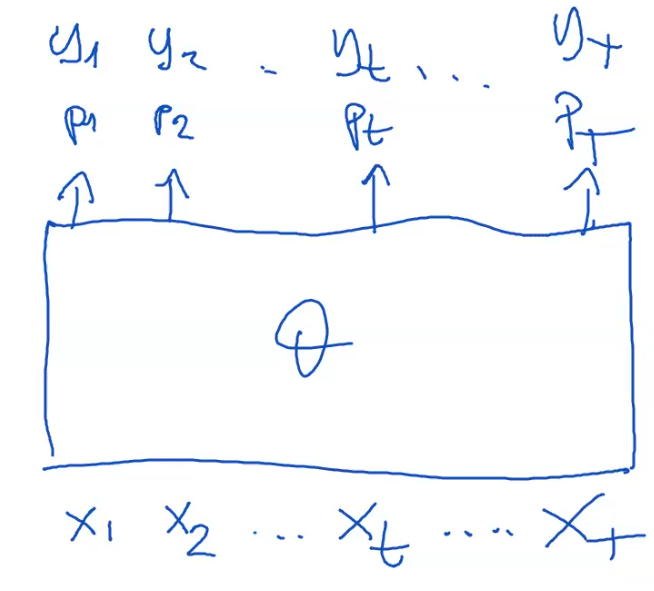 y₁ y₂ . y_t ... y_T
p₁ p₂ p_t p_T
θ
x₁ x₂ ... x_t .... x_T